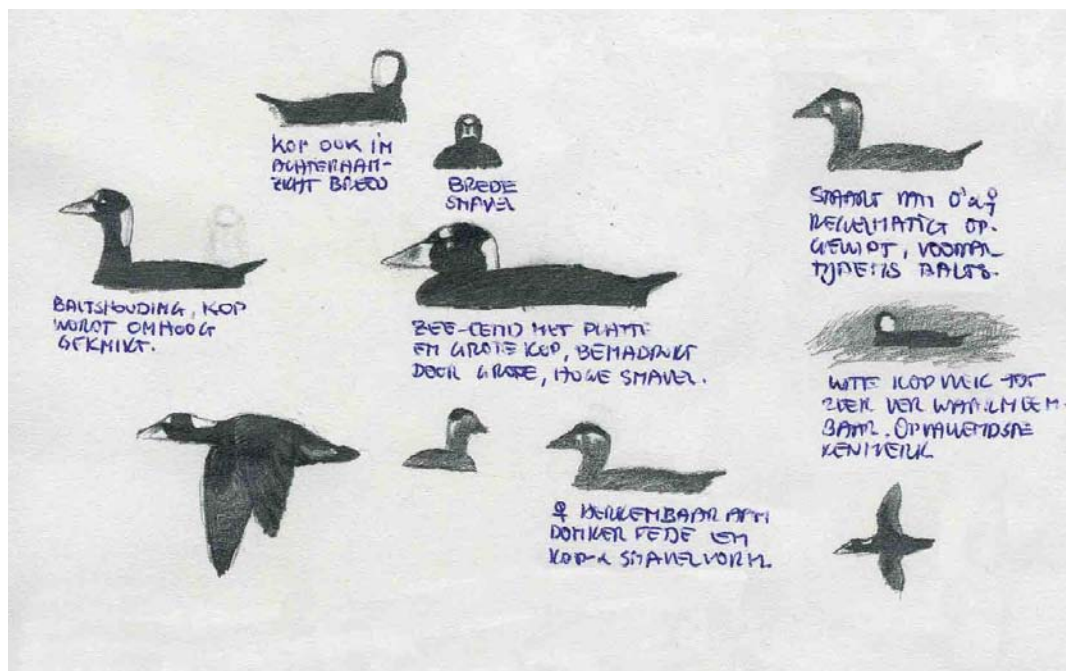 KOP OOK IN
ACHTERAAN-
ZICHT BREED
BREDE
SNAVEL
STAART VAN ♂ & ♀
REGELMATIG OP-
GEWIPT, VOORAL
TIJDENS BALTS.
BALTSHOUDING, KOP
WORDT OMHOOG
GEKNIKT.
ZEE-EEND MET PLATTE
EN GROTE KOP, BENADRUKT
DOOR GROTE, HOGE SNAVEL.
WITTE KOPVLEK TOT
ZEER VER WAARNEEM-
BAAR. OPVALLENDSTE
KENMERK
♀ HERKENBAAR AAN
DONKER EN
KOP- & SNAVELVORM.